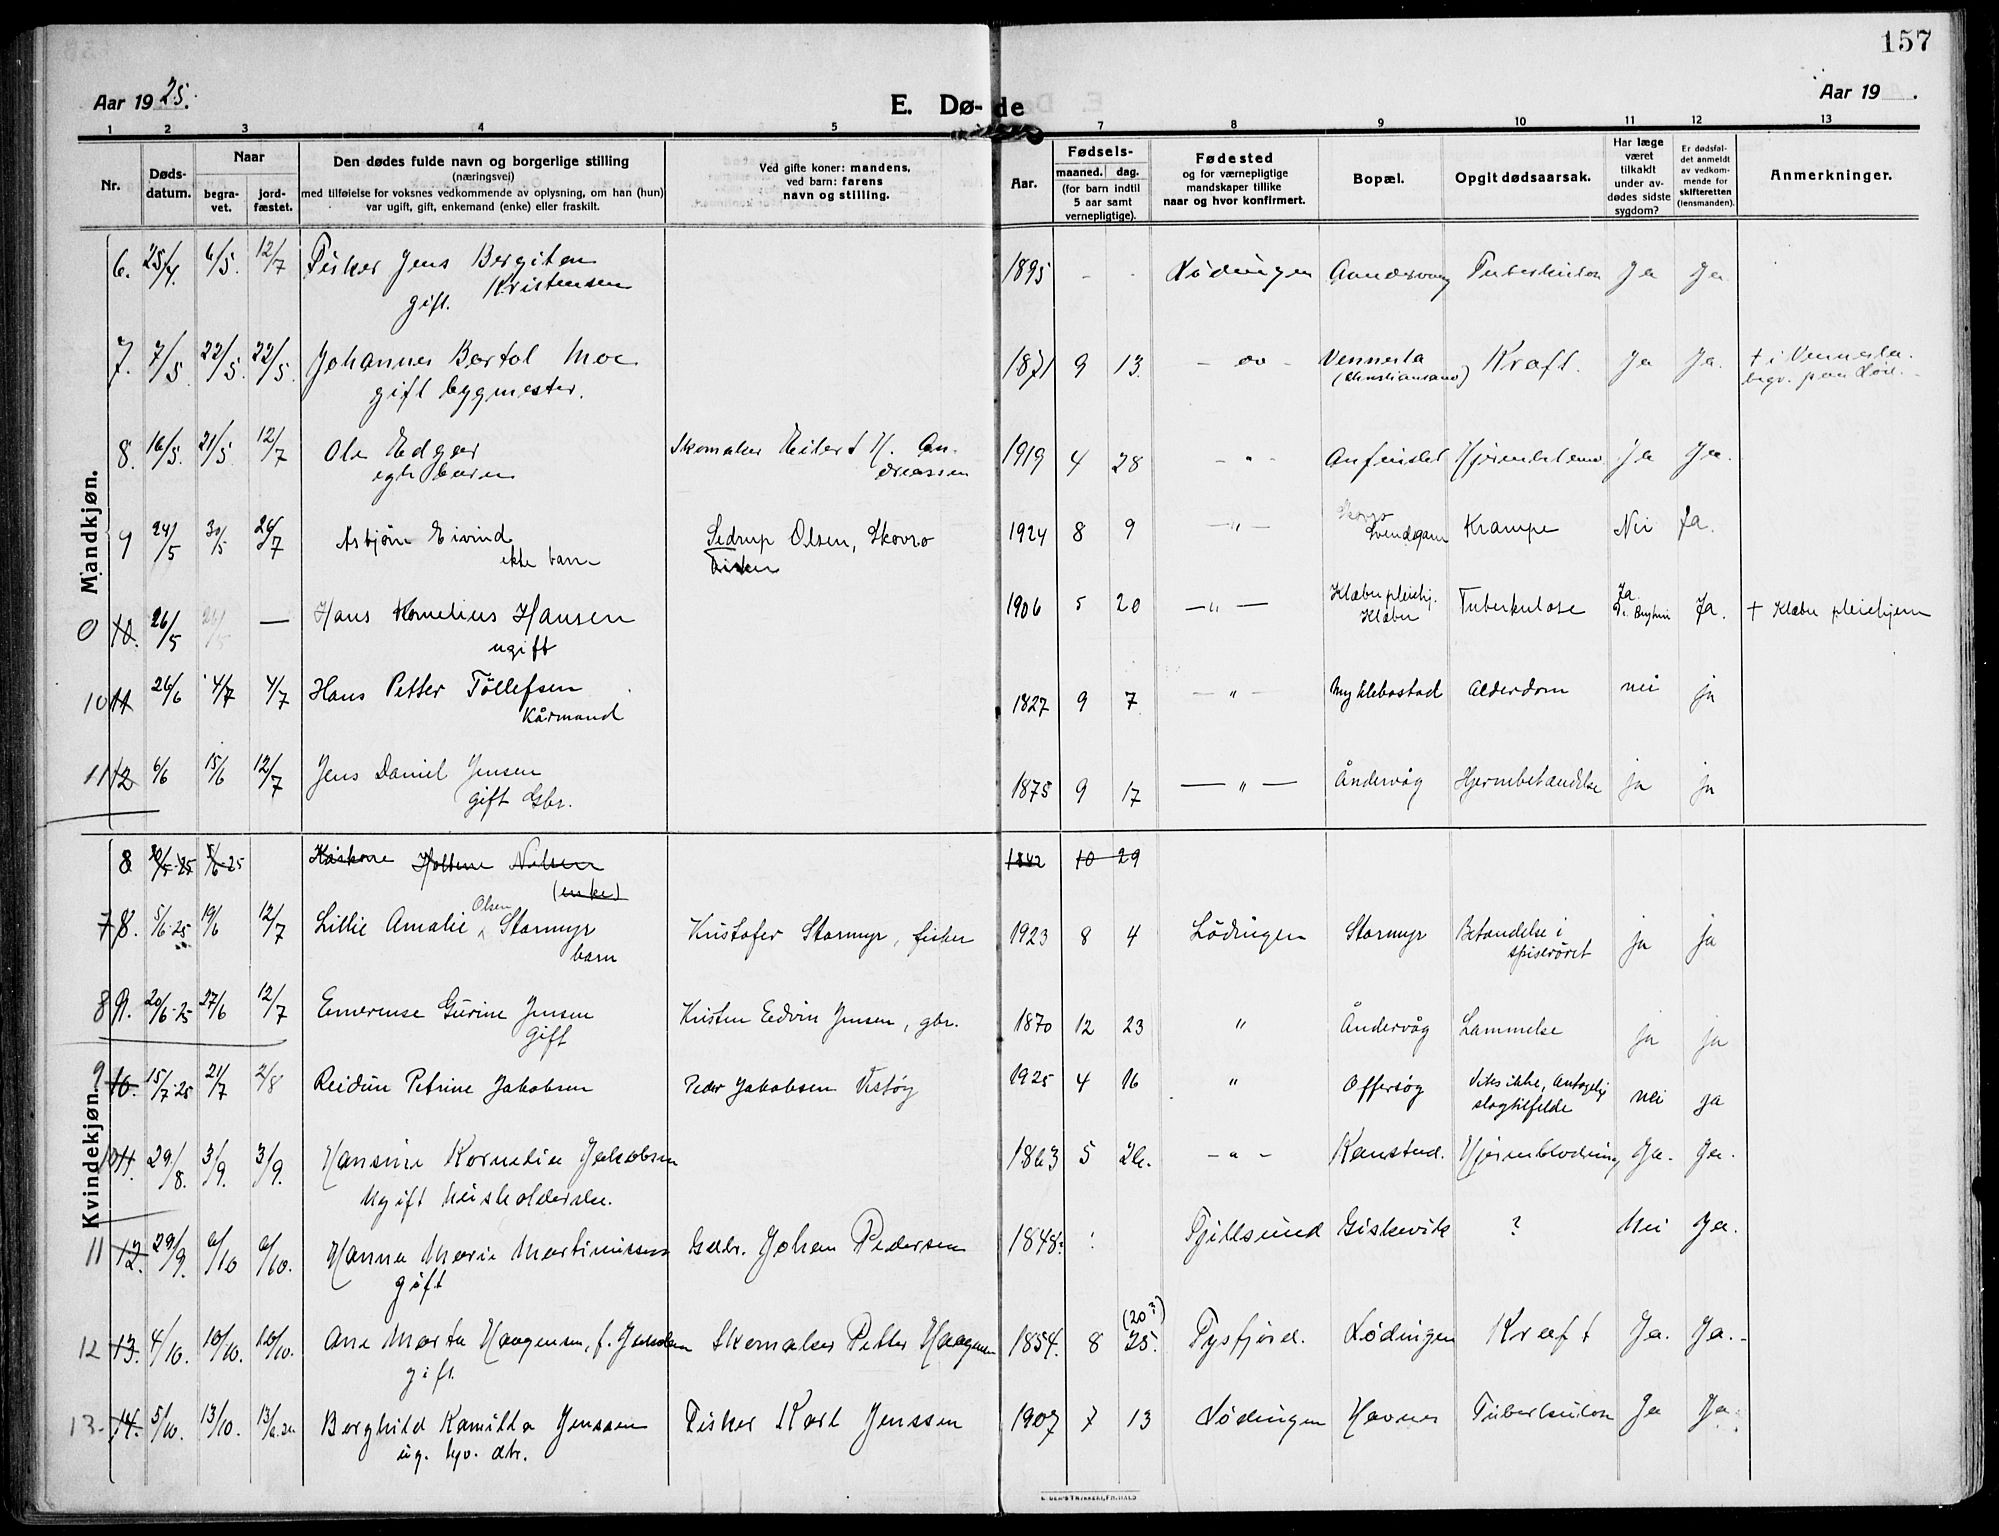 157
Aar 1925.
E. Dø- de
Aar 19 .
1 2 3 4 5 7 8 9 10 11 12 13
Nr.
Døds-
datum.
Naar
begra-
vet.
jord-
fæstet.
Den dødes fulde navn og borgerlige stilling
(næringsvei)
med tilføielse for voksnes vedkommende av oplysning, om han (hun)
var ugift, gift, enkemand (enke) eller fraskilt.
Ved gifte koner: mandens,
ved barn: farens
navn og stilling.
Aar.
Fødsels-
maaned. dag.
(for barn indtil
5 aar samt
vernepligtige).
Fødested
og for værnepligtige
mandskaper tillike
naar og hvor konfirmert.
Bopæl.
Opgit dødsaarsak.
Har læge
været
tilkaldt
under av-
dødes sidste
sygdom?
Er dødsfal-
det anmeldt
av vedkom-
mende for
skifteretten
(lensmanden).
Anmerkninger.
Mandkjøn.
6. 25/4. 6/5. 12/7 Fisker Jens Bergiton 1895 - - Lødingen Aandervaag Tuberkulose Ja Ja
Kristensen
gift.
7. 7/5 22/5. 22/5. Johannes Bartol Moe 1871 9 13. - do - Vennesla Kraft. Ja Ja. † i Vennesla.
gift bygmester. (Christiansand) begr. paa Lød.
8. 16/5. 21/5 12/7 Ole Edgar Skomaker Eilert H. An- 1919 4 28 - " - Anfindsl Ja Ja.
egte barn dreassen
9 24/5 30/5 26/7 Asbjørn Eivind Sedrup Olsen, Skovro 1924 8 9 - " - Skovro Krampe Nei Ja.
ekte barn Fisker
0 10. 26/5 — Hans Kornelius Hansen 1906 5 20 - " - Klæbu pleiehj. Tuberkulose Ja. Ja. † Klæbu pleiehjem
ugift Klæbu
10 11 26/6 4/7 4/7 Hans Petter Tollefsen 1827 9 7 - " - Myklebostad Alderdom nei ja
Kårmand
11 12 6/6 15/6 12/7 Jens Daniel Jensen 1875 9 17 - " - Åndervåg Hjernebetændelse ja ja
gift Gbr.
Kvindekjøn.
8 20/5-25 5/6-25 Haltine Nilsen 1842 10 29
(enke)
7 8. 5/6-25 19/6 12/7 Lillie Amalie Olsen Stormyr Kristofer Stormyr, fisker 1923 8 4 Lødingen Stormyr Betændelse i ja ja
barn spiserøret
8 9. 20/6-25 27/6 12/7 Emerense Gurine Jensen Kristen Edvin Jensen, gbr. 1870 12 23 " Åndervåg Lammelse ja ja
gift
9 10. 15/7-25 21/7 2/8 Reidun Petrine Jakobsen Peder Jakobsen Vestøy 1925 4 16 " Offersøy Vites ikke, Antagelig nei ja
slagtilfelde
10 11. 29/8. 3/9. 3/9. Hansine Kornelia Jakobsen 1863 5 26. - " - Kanstad. Hjerneblødning Ja. Ja.
Ugift husholderske.
11 12. 29/9. 6/10 6/10. Hanna Marie Martinussen Gdbr. Johan Pedersen 1848. Tjeldsund Giskevik ? Nei Ja.
gift
12 13. 4/10. 10/10. 10/10. Ane Marta Haagensen, f. Jensen Skomaker Petter Haagensen 1854. 8 (20?) 25. Tysfjord. Lødingen Kræft Ja. Ja.
gift
13. 14. 5/10. 13/10. Borghild Kamilla Jenssen Fisker Karl Jenssen 1907 7 13 Lødingen Havnes Tuberkulose Ja Ja.
ug. hjv. dtr.